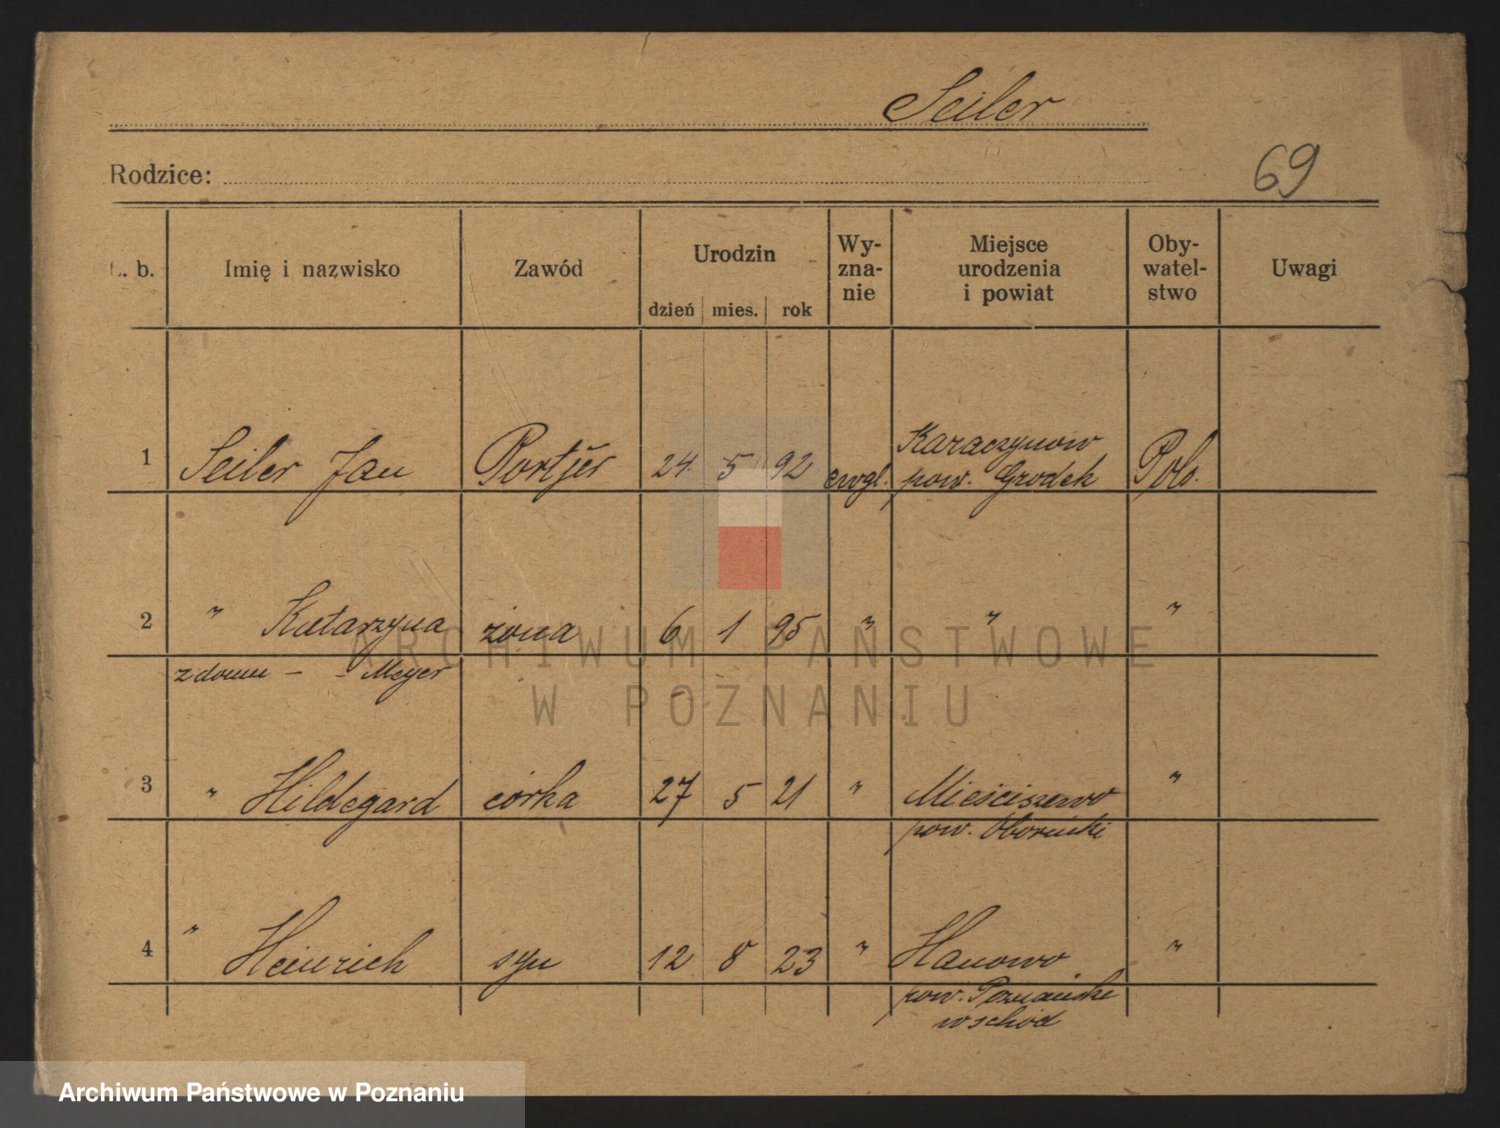 Seiler
Rodzice:
69
L. b. Imię i nazwisko Zawód Urodzin dzień mies. rok Wy-zna-nie Miejsce urodzenia i powiat Oby-watel-stwo Uwagi
1 Seiler Jan Portjer 24 5 92 ewgl. Karaczynow pow. Grodek Pol.
2 " Katarzyna żona 6 1 95 " " "
z domu - - Meyer
3 " Hildegard córka 27 5 21 " Mieściszewo "
pow. Obornicki
4 " Heinrich syn 12 8 23 " Hanowo "
pow. Poznański
wschód
ARCHIWUM PAŃSTWOWE
W POZNANIU
Archiwum Państwowe w Poznaniu